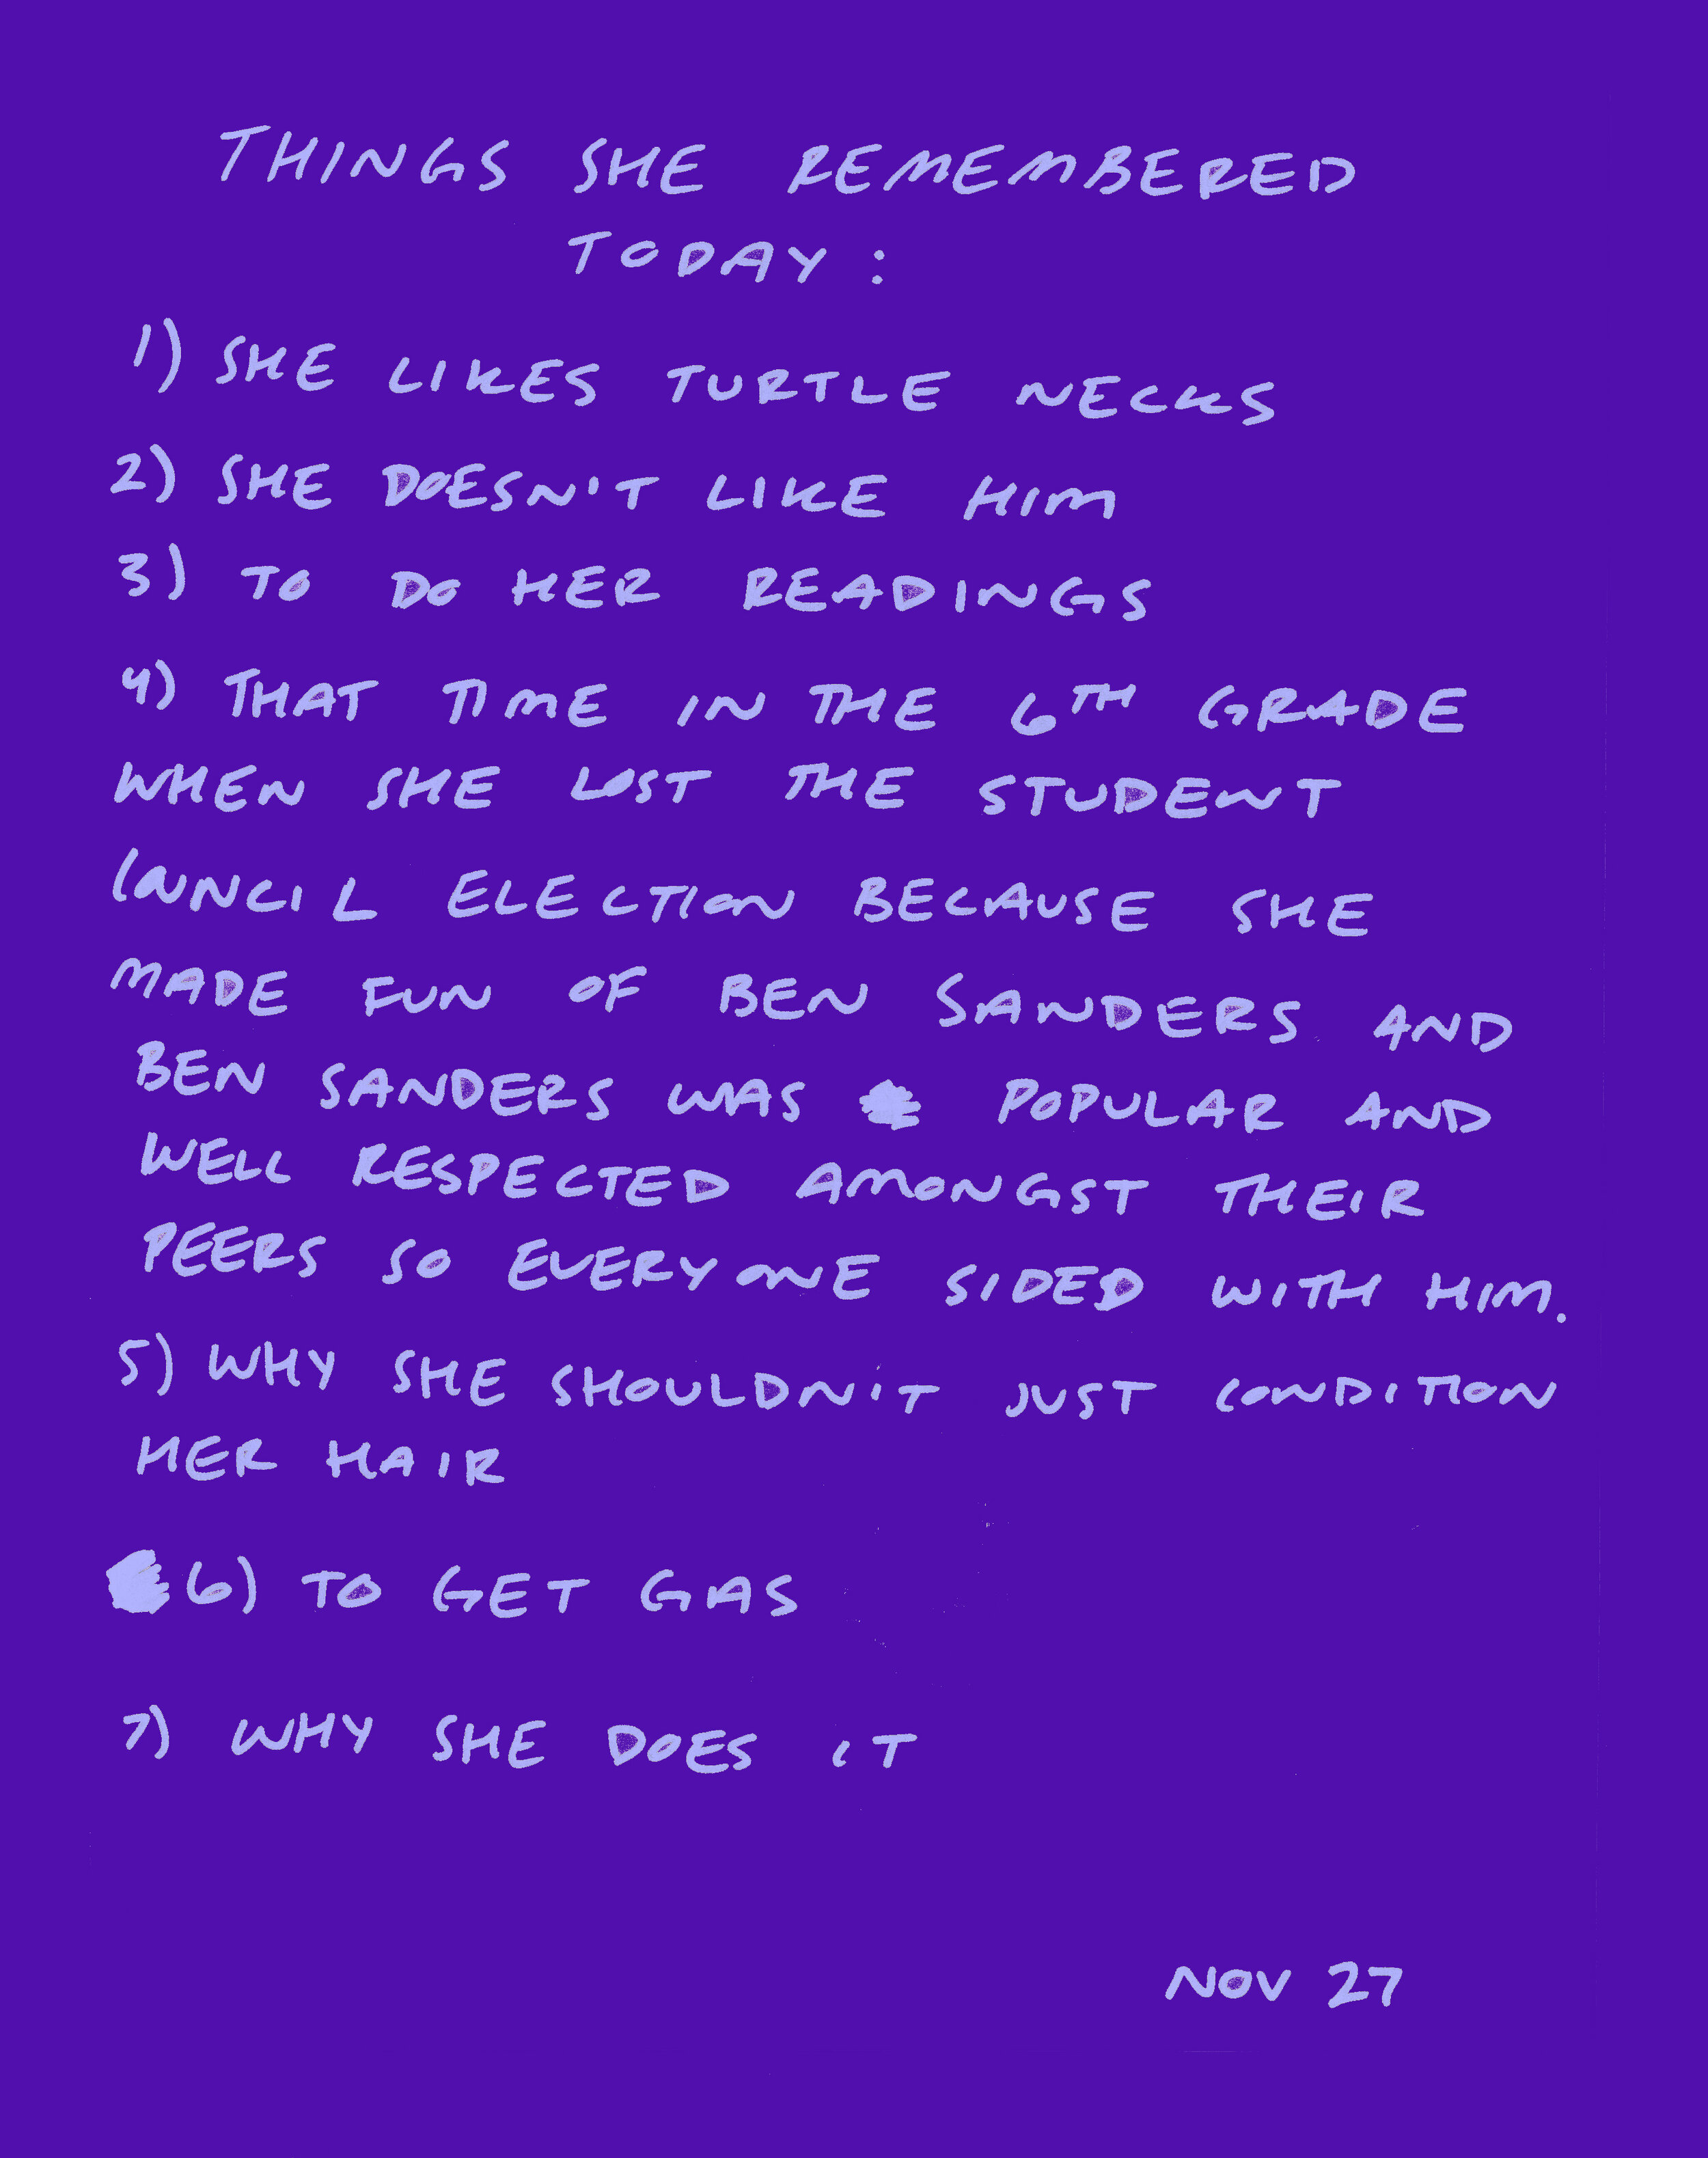 THINGS SHE REMEMBERED
TODAY:
1) SHE LIKES TURTLE NECKS
2) SHE DOESN'T LIKE HIM
3) TO DO HER READINGS
4) THAT TIME IN THE 6TH GRADE
WHEN SHE LOST THE STUDENT
COUNCIL ELECTION BECAUSE SHE
MADE FUN OF BEN SANDERS AND
BEN SANDERS WAS POPULAR AND
WELL RESPECTED AMONGST THEIR
PEERS SO EVERYONE SIDED WITH HIM.
5) WHY SHE SHOULDN'T JUST CONDITION
HER HAIR
6) TO GET GAS
7) WHY SHE DOES IT
NOV 27